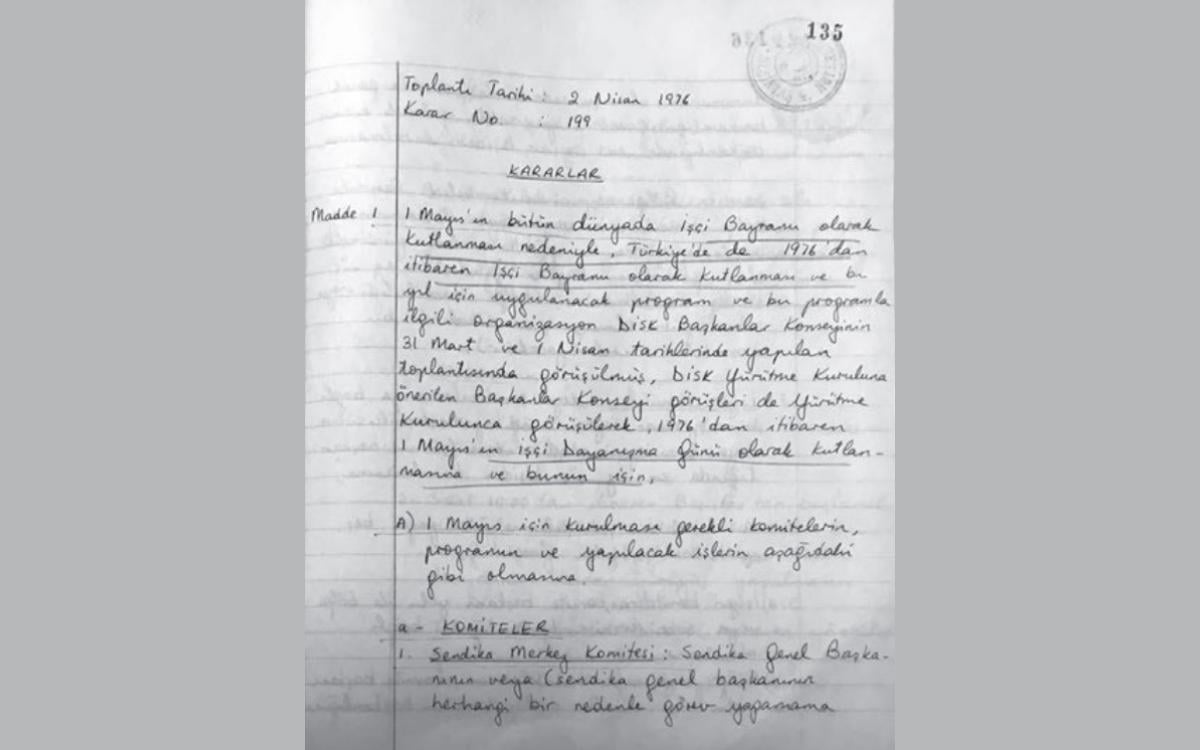 135
Toplantı Tarihi : 2 Nisan 1976
Karar No. : 199
KARARLAR
Madde 1 1 Mayıs'ın bütün dünyada işçi Bayramı olarak
kutlanması nedeniyle, Türkiye'de de 1976'dan
itibaren İşçi Bayramı olarak kutlanması ve bu
yıl için uygulanacak program ve bu programla
ilgili organizasyon DİSK Başkanlar Konseyinin
31 Mart ve 1 Nisan tarihlerinde yapılan
toplantısında görüşülmüş, DİSK Yürütme Kuruluna
önerilen Başkanlar Konseyi görüşleri de Yürütme
Kurulunca görüşülerek, 1976'dan itibaren
1 Mayıs'ın işçi Dayanışma Günü olarak kutlan-
masına ve bunun için,
A) 1 Mayıs için kurulması gerekli komitelerin,
programın ve yapılacak işlerin aşağıdaki
gibi olmasına.
a- KOMİTELER
1. Sendika Merkez Komitesi : Sendika Genel Başka-
nının veya (sendika genel başkanının
herhangi bir nedenle görev yapamama